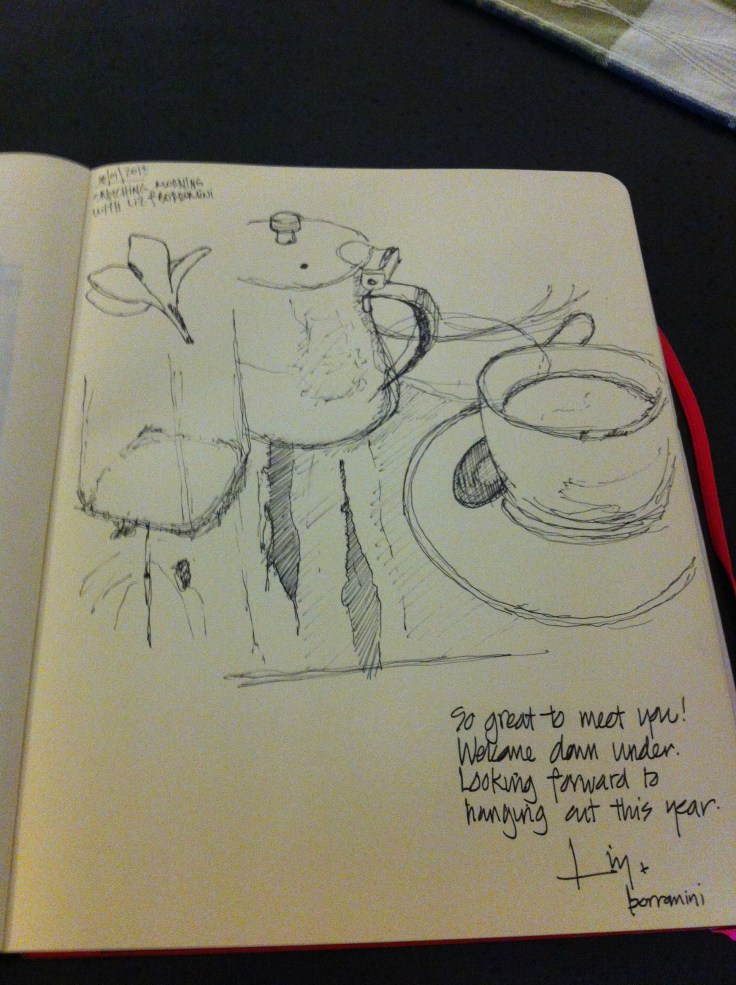 SKETCHING MORNING
WITH LIZ & BORROMINI
So great to meet you!
Welcome down under.
Looking forward to
hanging out this year.
Liz +
borromini